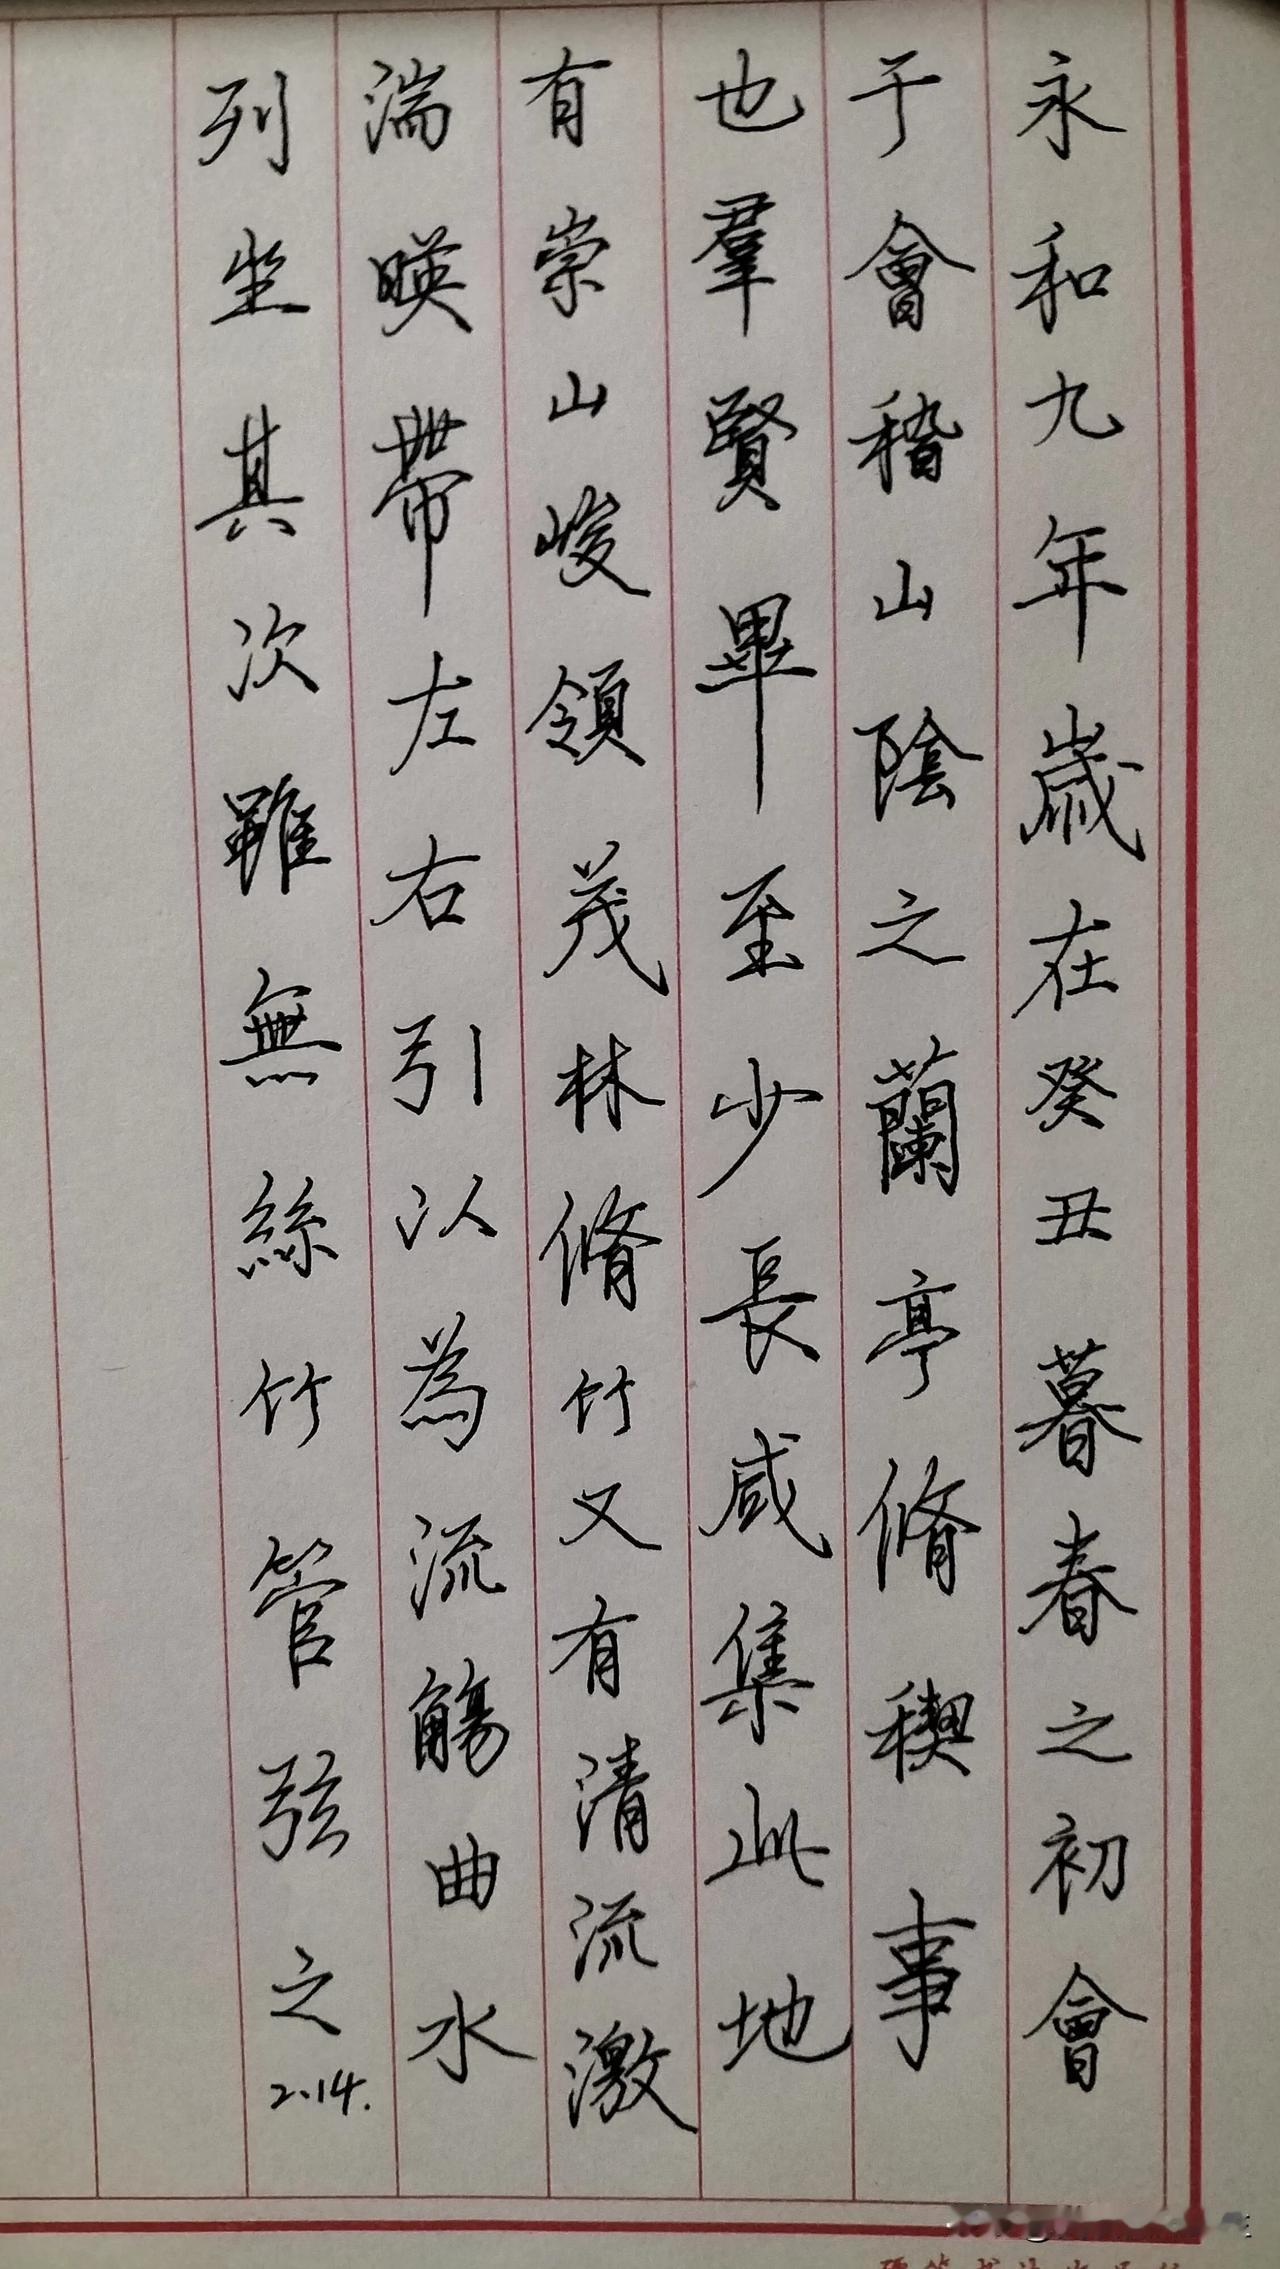 永和九年歲在癸丑暮春之初會
于會稽山陰之蘭亭脩稧事
也羣賢畢至少長咸集此地
有崇山峻領茂林脩竹又有清流激
湍暎帶左右引以為流觴曲水
列坐其次雖無絲竹管弦之
2.14.